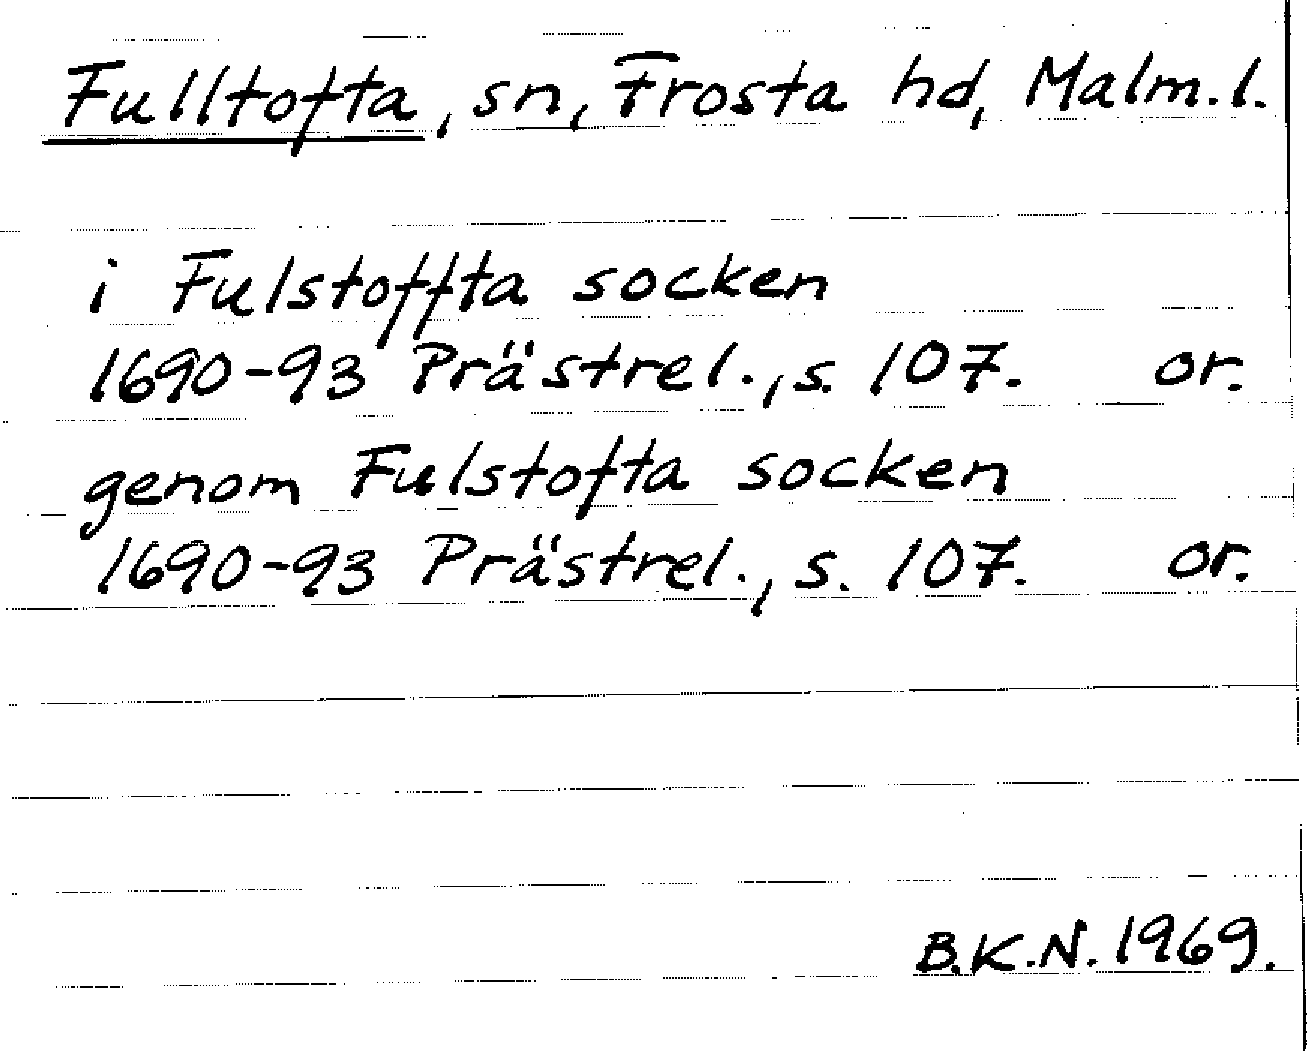 Fulltofta, sn, Frosta hd, Malm.l.
i Fulstoffta socken
1690-93 Prästrel., s. 107. or.
genom Fulstofta socken
1690-93 Prästrel., s. 107. or.
B.K.N. 1969.